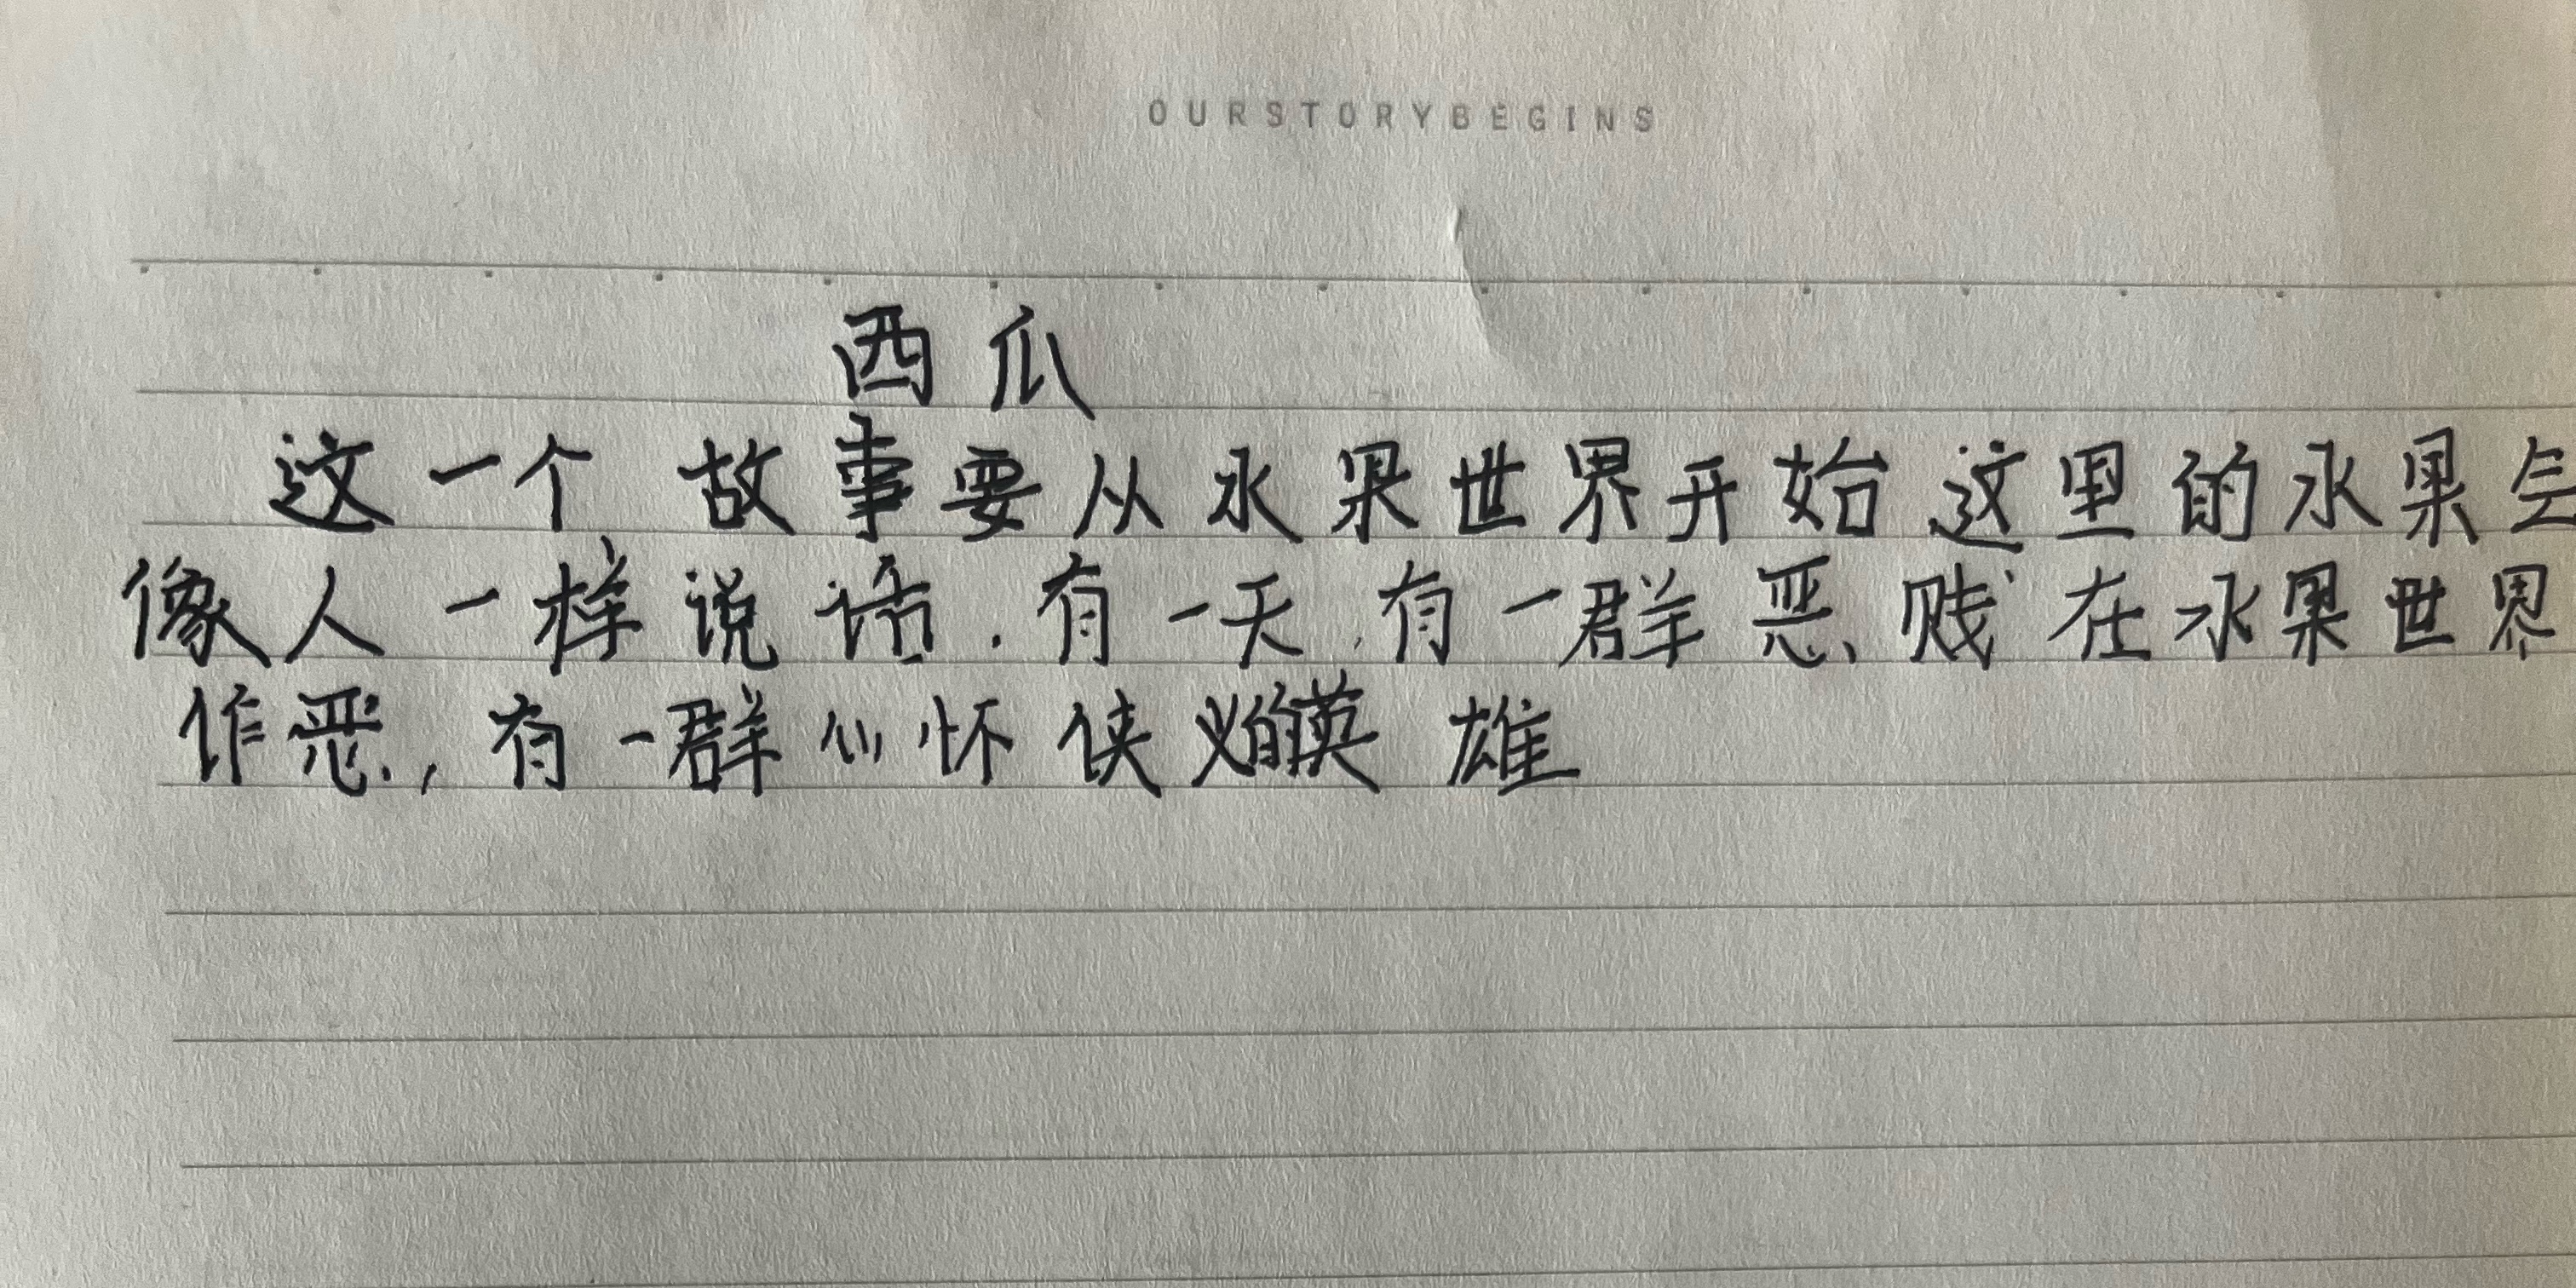 OURSTORYBEGINS
西瓜
这一个故事要从水果世界开始这里的水果会
像人一样说话.有一天,有一群恶贱在水果世界
作恶,有一群心怀侠义的英雄